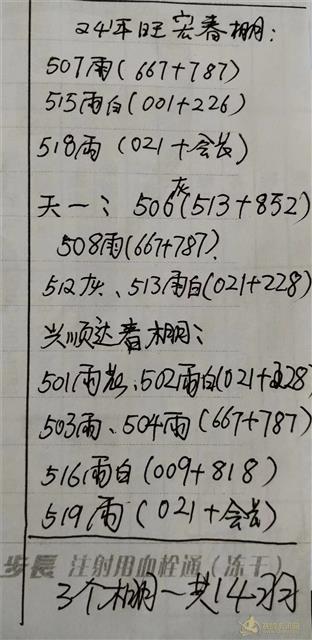 24年旺宏春棚:
507雨(667+787)
515雨白(001+226)
518雨(021+会长)
天一: 506灰(513+852)
508雨(667+787).
512灰、513雨白(021+228)
兴顺达春棚:
501雨花、502雨白(021+228)
503雨、504雨(667+787)
516雨白(009+818)
519雨(021+会长)
步長 注射用血栓通(冻干)
3个棚一共14羽